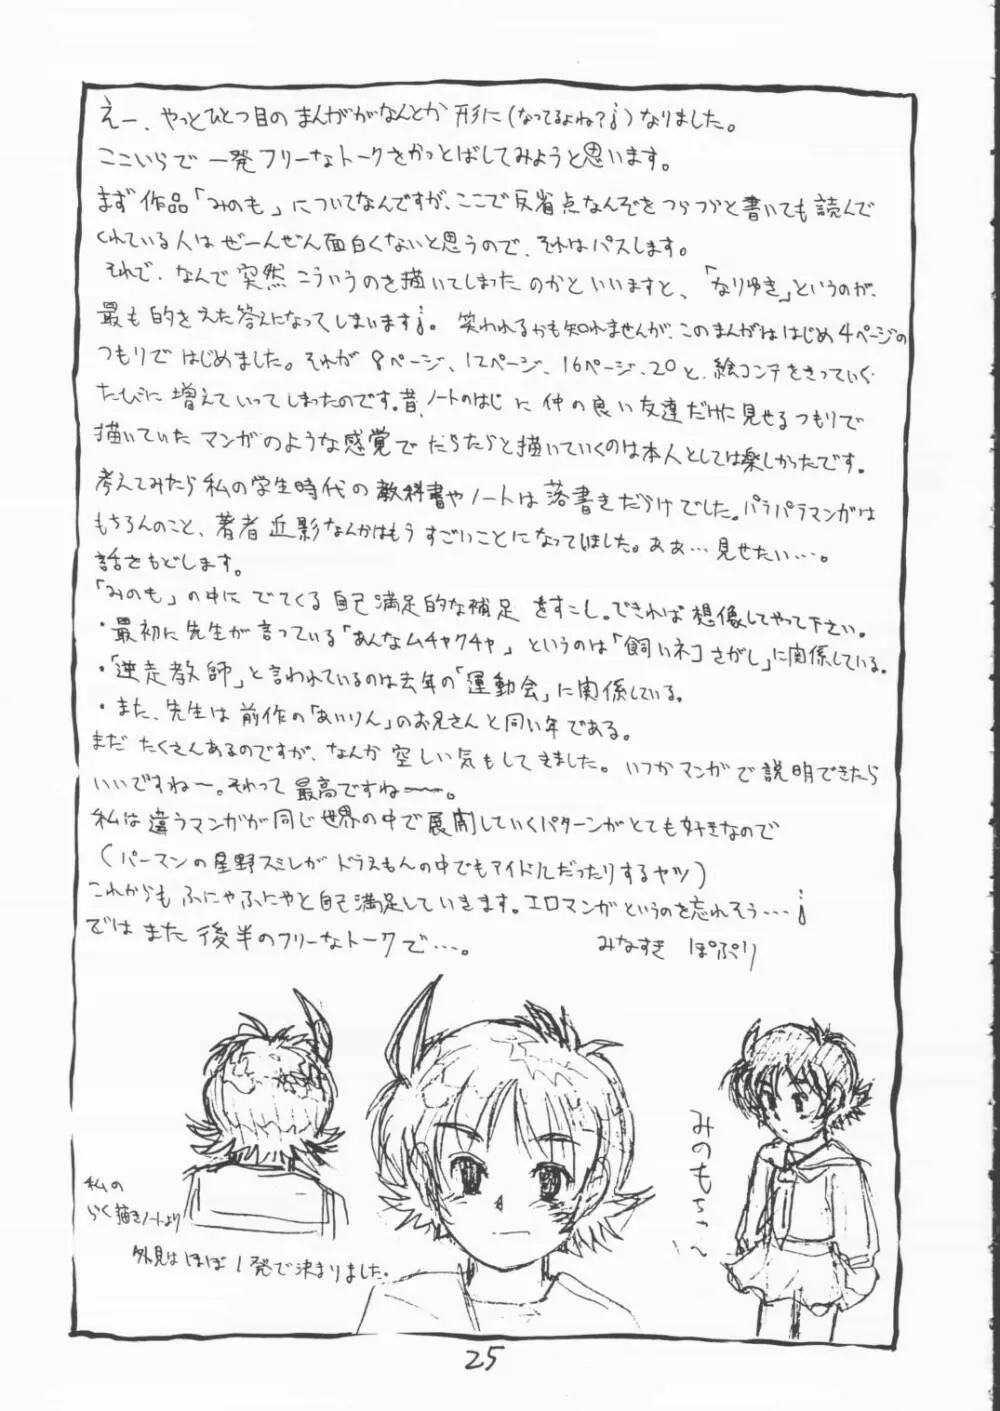 えー、やっとひとつ目のまんががなんとか形に(なってるよね?!)なりました。
ここいらで一発フリーなトークをかっとばしてみようと思います。
まず作品「みのも」についてなんですが、ここで反省点なんぞをつらつらと書いても読んで
くれている人はぜーんぜん面白くないと思うので、それはパスします。
それで、なんで突然こういうのを描いてしまったのかといいますと、「なりゆき」というのが、
最も的をえた答えになってしまいます!。笑われるかも知れませんが、このまんがははじめ4ページの
つもりではじめました。それが8ページ、12ページ、16ページ、20と、絵コンテをきっていく
たびに増えていってしまったのです。昔、ノートのはじに仲の良い友達だけに見せるつもりで
描いていたマンガのような感覚でだらだらと描いていくのは本人としては楽しかったです。
考えてみたら私の学生時代の教科書やノートは落書きだらけでした。パラパラマンガは
もちろんのこと、著者近影なんかはもうすごいことになってしました。ああ…見せたい…。
話をもどします。
「みのも」の中にでてくる自己満足的な補足をすこし。できれば想像してやって下さい。
・最初に先生が言っている「あんなムチャクチャ」というのは「飼いネコさがし」に関係している。
・「逆走教師」と言われているのは去年の「運動会」に関係している。
・また、先生は前作の「あいりん」のお兄さんと同い年である。
まだたくさんあるのですが、なんか空しい気もしてきました。いつかマンガで説明できたら
いいですねー。それって最高ですねー。
私は違うマンガが同じ世界の中で展開していくパターンがとても好きなので
(パーマンの星野スミレがドラえもんの中でもアイドルだったりするヤツ)
これからもふにゃふにゃと自己満足していきます。エロマンガというのを忘れそう…!
ではまた後半のフリーなトークで…。
みなすき ぽぷり
私の
らく描きノートより
外見はほぼ1発で決まりました。
みのもちゃ〜ん
25